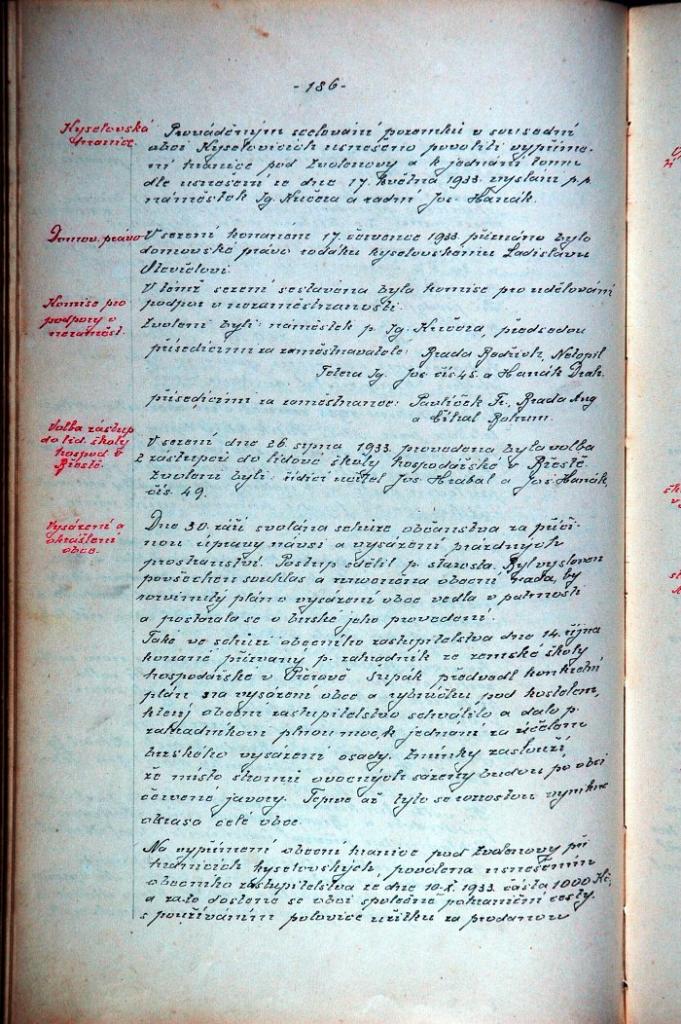 - 186 -
Kyselovská
hranice.
Prováděným scelování pozemků v sousední
obci Kyselovicích usneseno povoliti vypříme-
ní hranice pod Zvolenovy a k jednání tomu
dle usnesení ze dne 17. května 1933 vysláni p.p.
náměstek Ig. Kučera a radní Jos. Hanák.
Domov. právo
V sezení konaném 17. července 1933 přiznáno bylo
domovské právo rodáku kyselovskému Ladislavu
Komise pro
podpory v
nezaměst.
V témž sezení sestavena byla komise pro udělování
podpor v nezaměstnanosti.
Zvoleni byli: náměstek p. Ig. Kučera, předsedou
přísedícími za zaměstnavatele: Brada Bedřich, Netopil
Ig. Jos. čís. 45. a Hanák
přísedícími za zaměstnance: Pavlíček Fr., Brada Aug
a Cíkal
Volba zástup
do lid. školy
hospod. v
Břestě.
V sezení dne 26. srpna 1933. provedena byla volba
2 zástupců do lidové školy hospodářské v Břestě.
Zvoleni byli: řídící učitel Jos. Hrabal a Jos. Hanák,
čís. 49.
Vysázení a
okrášlení
obce.
Dne 30. září svolána schůze občanstva za příči-
nou úpravy návsi a vysázení prázdných
prostranství. Postup sdělil p. starosta. Byl vysloven
povšechný souhlas a zmocněna obecní rada, by
rozvinutý plán o vysázení obce vedla v patrnosti
a postarala se o brzské jeho provedení.
Také ve schůzi obecního zastupitelstva dne 14. října
konané přizvaný p. zahradník ze zemské školy
hospodářské v Přerově Supák předvedl konkretní
plán na vysázení obce a rybníčku pod kostelem,
který obecní zastupitelstvo schválilo a dalo p.
zahradníkovi plnou moc k jednání za účelem
brzského vysázení osady. Zmínky zaslouží,
že místo stromů ovocných sázeny budou po obci
červené javory. Teprve až tyto se rozrostou vynikne
okrasa celé obce.
Na vypřímení obecní hranice pod Zvolenovy při
hranicích kyselovských, povolena usnesením
obecního zastupitelstva ze dne 10. X. 1933 částka 1000 Kč,
a zato dostane se obci společné pohraniční cesty,
s používáním polovice užitku za prodanou